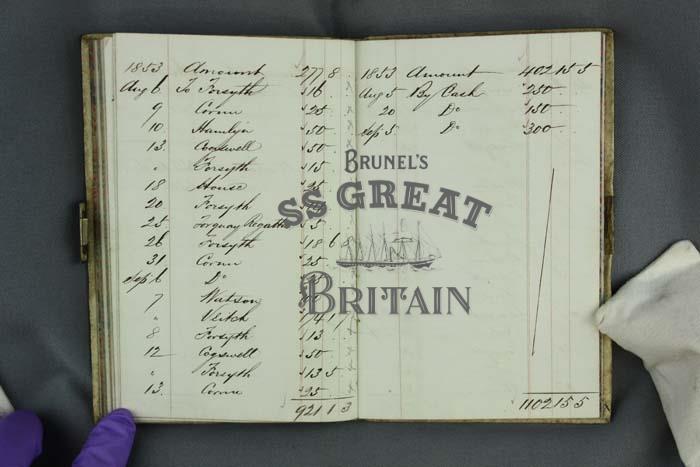 1853 Amount 277 8
Aug 6 To Forsyth 16
9 Corner 25
10 Hamlyn 50
13 Cogswell 50
" Forsyth 15
18 House 25
20 Forsyth
25 Torquay Regatta 5
26 Forsyth 18 6
31 Corner 25
Sep 6 Do
7 Watson
" Veitch
8 Forsyth 13
12 Cogswell 50
" Forsyth 13 5
13 Corner 25
921 1 3
1853 Amount 402 15 5
Aug 5 By Cash 250
20 Do 150
Sep 5 Do 300
1102 15 5
BRUNEL'S
SS GREAT
BRITAIN